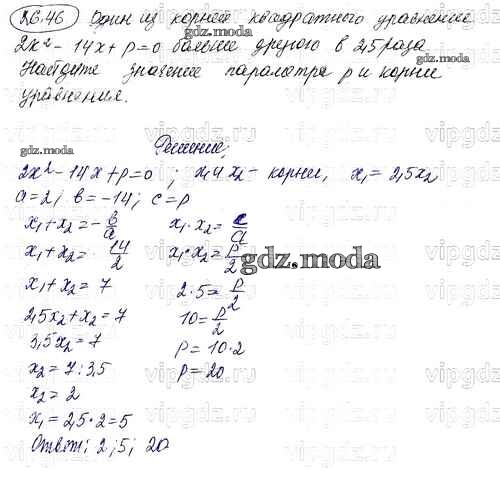 26.46 Один из корней квадратного уравнения
2x² - 14x + p = 0 больше другого в 2,5 раза
Найдите значение параметра p и корни
уравнения.
Решение:
2x² - 14x + p = 0 ; x₁ и x₂ - корни, x₁ = 2,5x₂
a = 2; b = -14; c = p
x₁ + x₂ = -b/a x₁ · x₂ = c/a
x₁ + x₂ = 14/2 x₁ · x₂ = p/2
gdz.moda
gdz.moda
x₁ + x₂ = 7 2 · 5 = p/2
2,5x₂ + x₂ = 7 10 = p/2
3,5x₂ = 7 p = 10 · 2
x₂ = 7 : 3,5 p = 20
x₂ = 2
x₁ = 2,5 · 2 = 5
Ответ: 2 ; 5; 20
gdz.moda